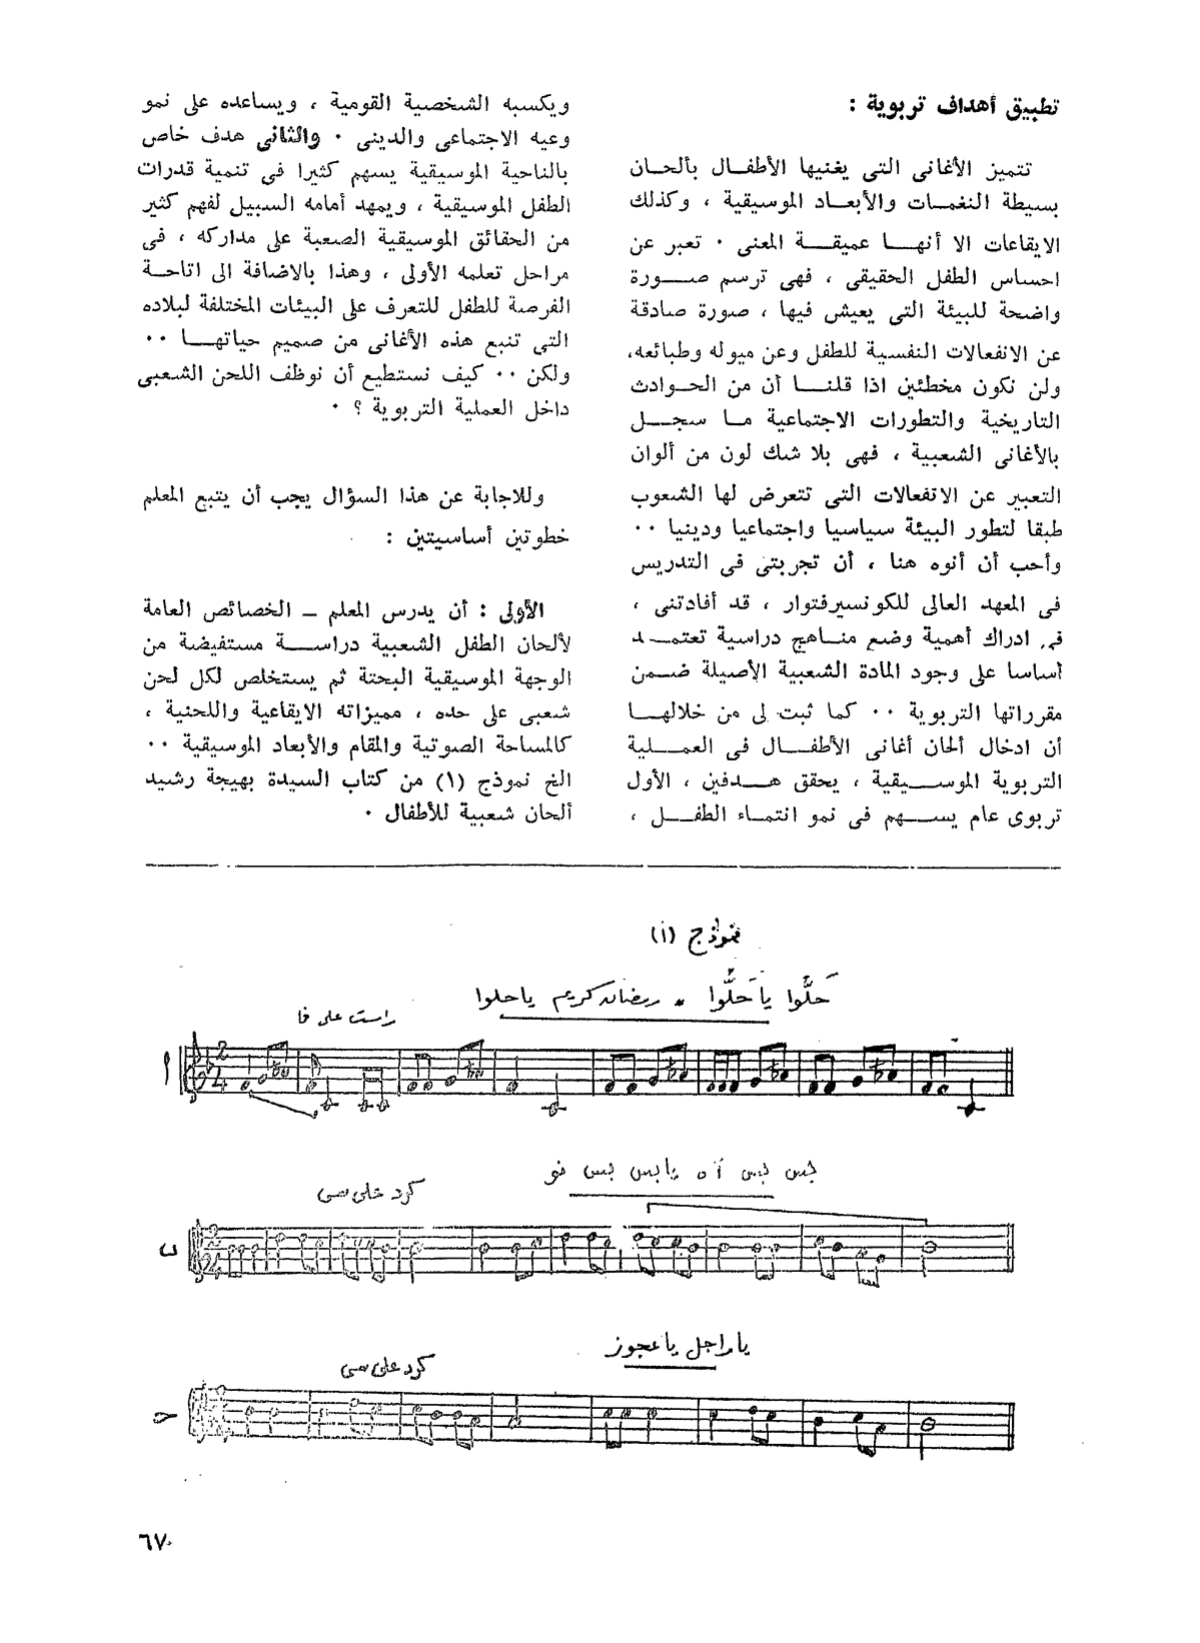 تطبيق أهداف تربوية :
تتميز الأغانى التى يغنيها الأطفـال بألحـان
بسيطة النغمـات والأبعـاد الموسيقية ، وكذلك
الايقاعات الا أنهـا عميقـة المعنى · تعبر عن
احساس الطفل الحقيقى ، فهى ترسم صـورة
واضحة للبيئة التى يعيش فيها ، صورة صادقة
عن الانفعالات النفسية للطفل وعن ميوله وطبائعه،
ولن نكون مخطئين اذا قلنـا أن من الحـوادث
التاريخية والتطورات الاجتماعية مـا سجـل
بالأغانى الشعبية ، فهى بلا شك لون من ألوان
التعبير عن الانفعالات التى تتعرض لها الشعوب
طبقا لتطور البيئة سياسيا واجتماعيا ودينيا ··
وأحب أن أنوه هنا ، أن تجربتى فى التدريس
فى المعهد العالى للكونسيرفتوار ، قد أفادتنى ،
فى ادراك أهمية وضع منـاهج دراسية تعتمـد
أساسا على وجود المادة الشعبية الأصيلة ضـمن
مقرراتها التربوية ·· كما ثبت لى من خلالهـا
أن ادخال ألحان أغانى الأطفـال فى العمـلية
التربوية الموسـيقية ، يحقق هـدفين ، الأول
تربوى عام يسـهم فى نمو انتمـاء الطفـل ،
ويكسبه الشخصية القومية ، ويساعده على نمو
وعيه الاجتماعى والدينى · والثانى هدف خاص
بالناحية الموسيقية يسهم كثيرا فى تنمية قدرات
الطفل الموسيقية ، ويمهد أمامه السبيل لفهم كثير
من الحقائق الموسيقية الصعبة على مداركه ، فى
مراحل تعلمه الأولى ، وهذا بالاضافة الى اتاحـة
الفرصة للطفل للتعرف على البيئات المختلفة لبلاده
التى تنبع هذه الأغانى من صميم حياتهـا ··
ولكن ·· كيف نستطيع أن نوظف اللحن الشعبى
داخل العملية التربوية ؟ ·
وللاجابة عن هذا السؤال يجب أن يتبع المعلم
خطوتين أساسيتين :
الأولى : أن يدرس المعلم ـ الخصائص العامة
لألحان الطفل الشعبية دراسـة مستفيضة من
الوجهة الموسيقية البحتة ثم يستخلص لكل لحن
شعبى على حده ، مميزاته الايقاعية واللحنية ،
كالمساحة الصوتية والمقام والأبعاد الموسيقية ··
الخ نموذج (١) من كتاب السيدة بهيجة رشيد
ألحان شعبية للأطفال ·
نموذج (١)
حَلُّوا يا حَلُّوا . رمضان كريم ياحلوا
راست على فا
ا
بس بس آه يا بس بس نو
كرد على مى
ب
يا راجل يا عجوز
كرد على مى
ح
٦٧